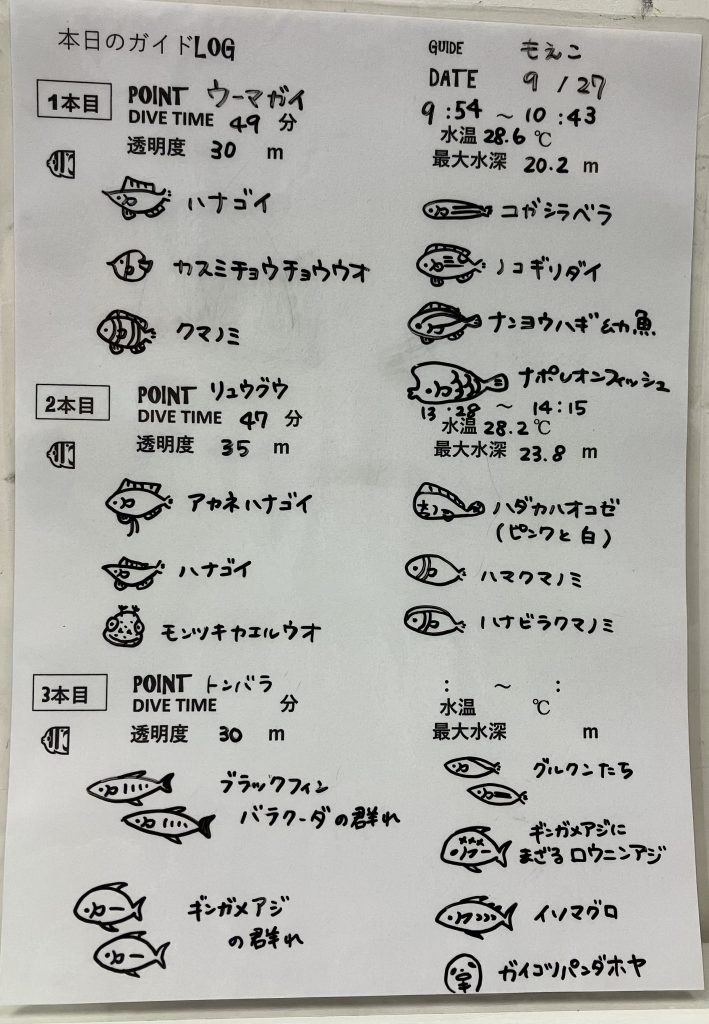 本日のガイドLOG
GUIDE もえこ
DATE 9 / 27
1本目
POINT ウーマガイ
DIVE TIME 49 分
透明度 30 m
9:54 ～ 10:43
水温 28.6 ℃
最大水深 20.2 m
ハナゴイ
カスミチョウチョウウオ
クマノミ
コガシラベラ
ノコギリダイ
ナンヨウハギ幼魚
ナポレオンフィッシュ
2本目
POINT リュウグウ
DIVE TIME 47 分
透明度 35 m
13:28 ～ 14:15
水温 28.2℃
最大水深 23.8 m
アカネハナゴイ
ハナゴイ
モンツキカエルウオ
ハダカハオコゼ
(ピンクと白)
ハマクマノミ
ハナビラクマノミ
3本目
POINT トンバラ
DIVE TIME 分
透明度 30 m
: ～ :
水温 ℃
最大水深 m
ブラックフィン
バラクーダの群れ
ギンガメアジ
の群れ
グルクンたち
ギンガメアジに
まざるロウニンアジ
イソマグロ
ガイコツパンダホヤ